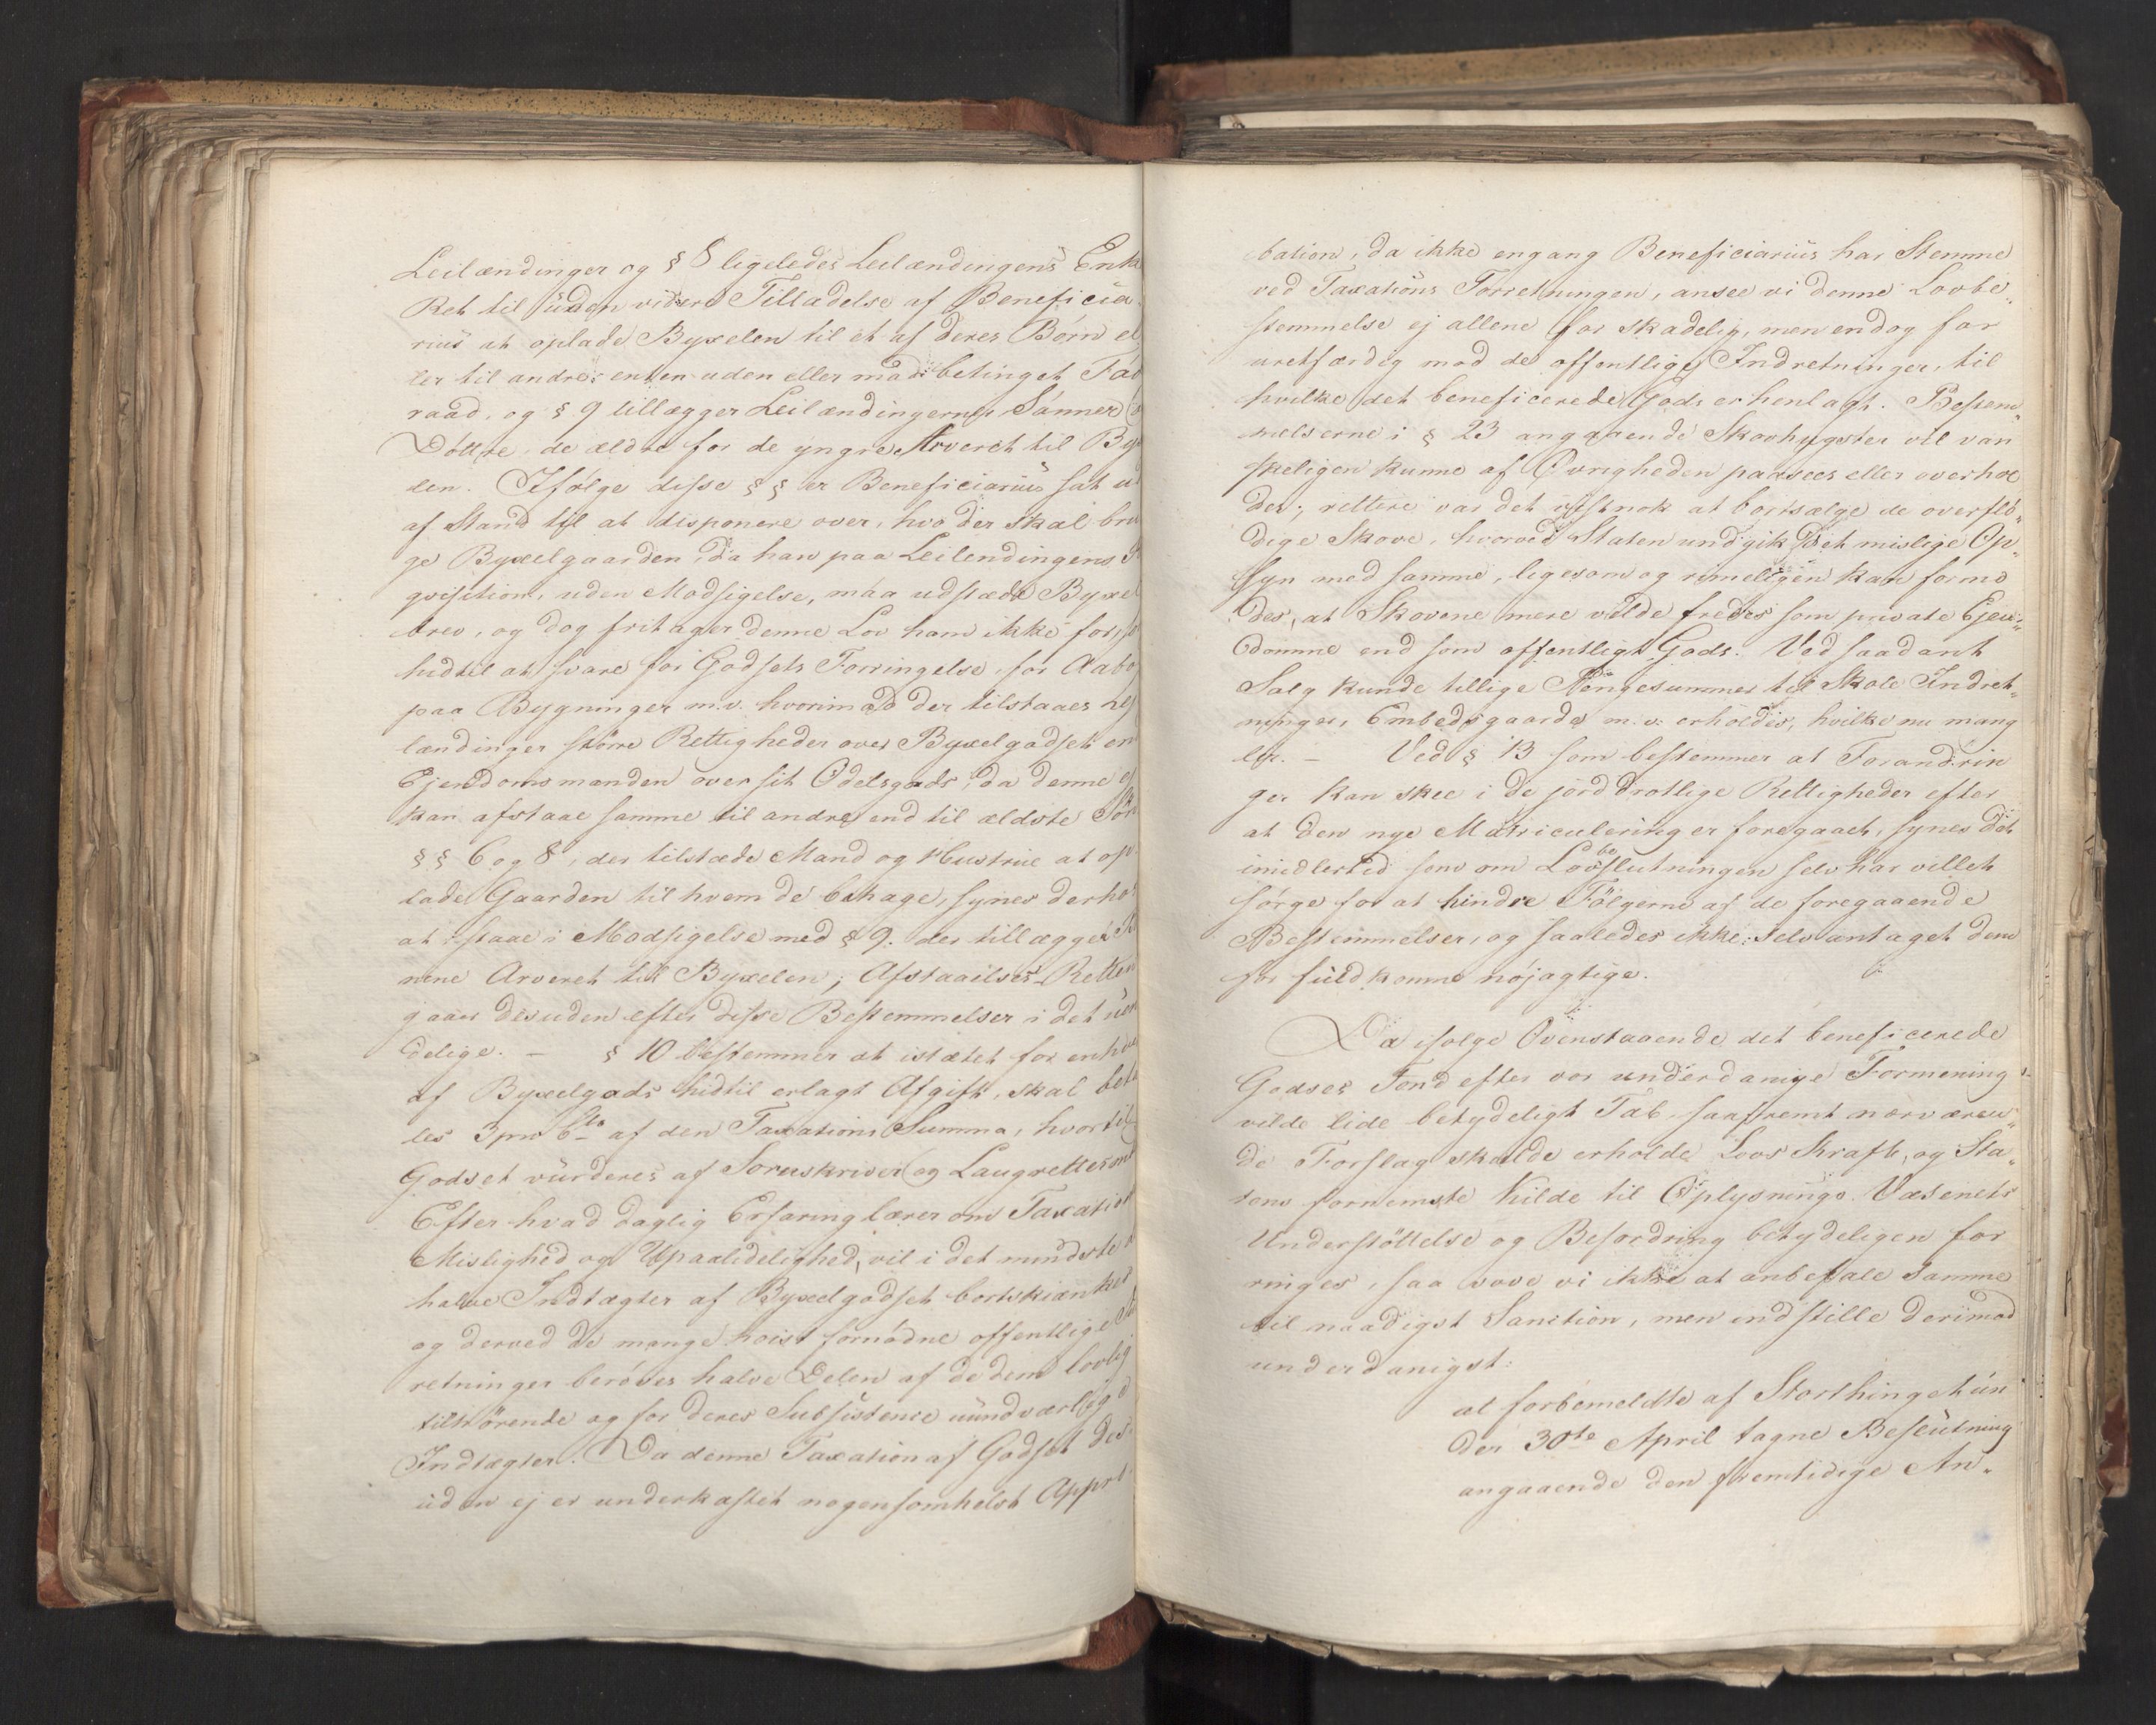 Leilændinger og § 8 ligeledes Leilændingens Enk
Ret til uden videre Tilladelse af Beneficia-
rius at oplade Byxelen til et af deres Børn el
ler til andre enten uden eller med betinget Fød
raad, og § 9 tillægger Leilændingernes Sønner
Døttre, de ældre for de yngre Arveret til By
len. Ifølge disse §§ er Beneficiarius sat ud
af Stand til at disponere over, hvo der skal bru
ge Byxelgaarden, da han paa Leilendingens
qvisition, uden Modsigelse, maa udstæde Byxel
brev, og dog fritager denne Lov ham ikke for, so
hidtil at svare for Godsets Forringelse, for Aabod
paa Bygninger m.v. hvorimod der tilstaaes Lei
lændinger større Rettigheder over Byxelgodset en
Ejendomsmanden over sit Odelsgods, da denne ej
kan afstaae samme til andre end til ældste Søn
§§ 6 og 8, der tilstæde Mand og Hustrue at op-
lade Gaarden til hvem de behage, synes derhos
at staae i Modsigelse med § 9. der tillægger
nene Arveret til Byxelen; Afstaaelses-Retten
gaaer desuden efter disse Bestemmelser i det uen
delige. — § 10 bestemmer at istætet for enhver
af Byxelgods hidtil erlagt Afgift, skal beta
les 3 pro Cto af den Taxations Summa, hvortil
Godset vurderes af Sorenskriver og Laugrettesmæ
Efter hvad daglig Erfaring lærer om Taxation
Mislighed og Upaalidelighed, vil i det mindste
halve Indtægter af Byxelgodset bortskiænkes
og derved de mange høist fornødne offentlige In
retninger berøves halve Delen af de dem lovlig
tilhørende og for deres Subsistence uundværlige
Indtægter. Da denne Taxation af Godset des-
uden ej er underkastet nogensomhelst Appro-
bation, da ikke engang Beneficiarius har Stemme
ved Taxations Forretningen, ansee vi denne Lovbe„
stemmelse ej allene for skadelig, men endog for
uretfærdig mod de offentlige Indretninger, til
hvilke det beneficerede Gods er henlagt. Bestem„
melserne i § 23 angaaende Skovhugster vil van
skeligen kunne af Øvrigheden paasees eller overhol
des; rettere var det vistnok at bortsælge de overflø„
dige Skove, hvorved Staten undgik det mislige Op„
syn med samme, ligesom og rimeligen kan formo
des, at Skovene mere vilde fredes som private Ejen„
domme end som offentligt Gods. Ved saadant
Salg kunde tillige Pengesummer til Skole Indret„
ninger, Embedsgaarde m. v. erholdes, hvilke nu mang
ler. — Ved § 13 som bestemmer at Forandrin
ger kan skee i de jorddrotlige Rettigheder efter
at den nye Matriculering er foregaaet, synes det
imidlertid som om Lovbeslutningen selv har villet
sørge for at hindre Følgerne af de foregaaende
Bestemmelser, og saaledes ikke selv antaget dem
for fuldkomne nøjagtige.
Da ifølge Ovenstaaende det beneficerede
Godses Fond efter vor underdanige Formening
vilde lide betydeligt Tab, saafremt nærværen„
de Forslag skulde erholde Lovs Kraft, og Sta„
tens fornemste Kilde til Oplysnings Væsenets
Understøttelse og Befordring betydeligen for
ringes, saa vove vi ikke at anbefale samme
til naadigst Sanction, men indstille derimod
underdanigst:
at forbemeldte af Storthinget un
der 30te April tagne Beslutning
angaaende den fremtidige An„